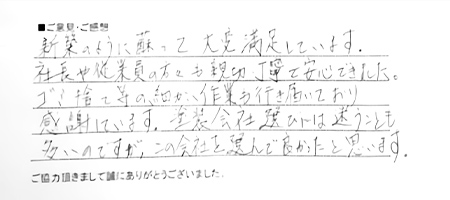 ■ご意見・ご感想
新築のように蘇って大変満足しています.
社長や従業員の方々も親切丁寧で安心できました。
ゴミ捨て等の細かい作業も行き届いており
感謝しています. 塗装会社選びには迷うことも
多いのですが,この会社を選んで良かったと思います.
ご協力頂きまして誠にありがとうございました。